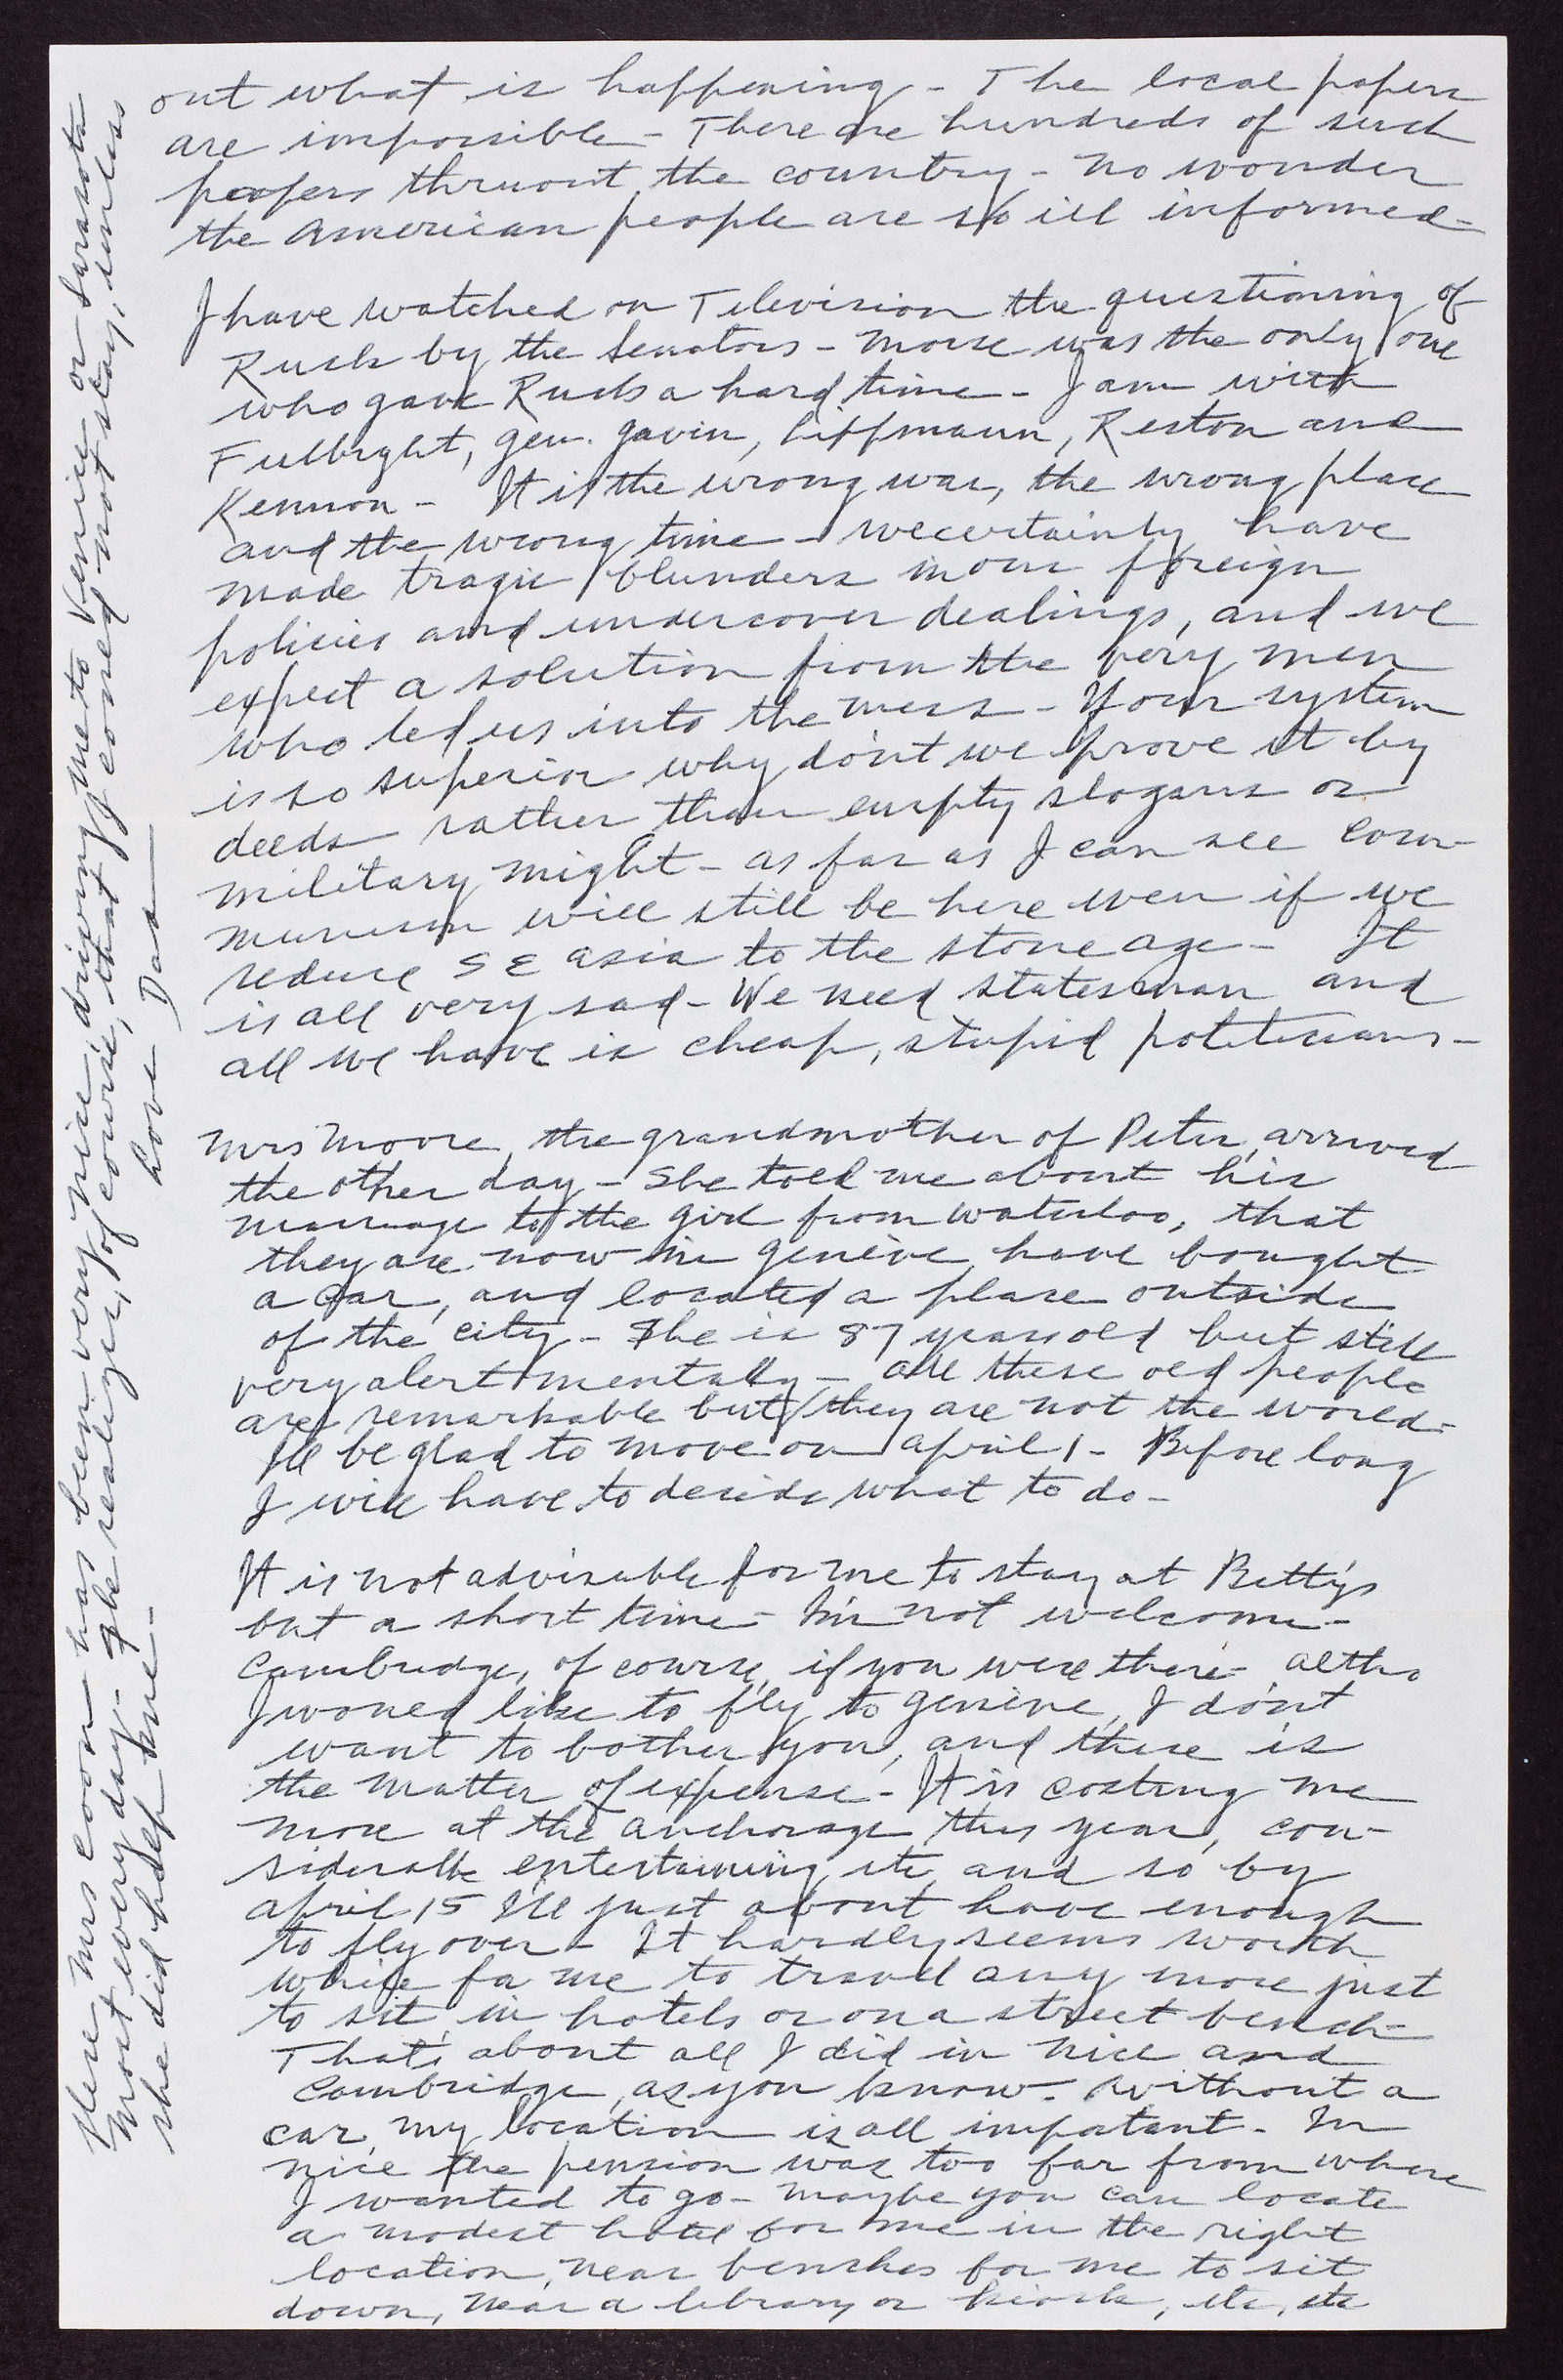 out what is happening - The local papers
are impossible - There are hundreds of such
papers thruout the country - no wonder
the American people are so ill informed -
I have watched on Television the questioning of
Rusk by the Senators - Morse was the only one
who gave Rusk a hard time - I am with
Fulbright, Gen. Gavin, Lippmann, Reston and
Kennon - It is the wrong war, the wrong place
and the wrong time - we certainly have
made tragic blunders in our foreign
policies and undercover dealings, and we
expect a solution from the very men
who led us into the mess - If our system
is so superior why don't we prove it by
deeds rather than empty slogans or
military might - as far as I can see Com-
munism will still be here even if we
reduce SE Asia to the stone age - It
is all very sad - We need statesman and
all we have is cheap, stupid politicians -
Mrs Moore, the grandmother of Peter, arrived
the other day - She told me about his
marriage to the girl from Waterloo, that
they are now in Genève, have bought
a car, and located a place outside
of the city - She is 87 years old but still
very alert mentally - all these old people
are remarkable but they are not the world -
I'll be glad to move on April 1 - Before long
I will have to decide what to do -
It is not advisable for me to stay at Betty's
but a short time - I'm not welcome -
Cambridge, of course, if you were there - altho
I would like to fly to Genève, I don't
want to bother you, and there is
the matter of expense - It is costing me
more at the anchorage this year, con-
siderable entertaining, etc, and so by
April 15 I'll just about have enough
to fly over - It hardly seems worth
while for me to travel any more just
to sit in hotels or on a street bench -
That's about all I did in Nice and
Cambridge, as you know. Without a
car, my location is all important - In
Nice the pension was too far from where
I wanted to go - Maybe you can locate
a modest hotel for me in the right
location, near benches for me to sit
down, near a library or kiosk, etc, etc
Here Mrs Coon has been very nice, driving me to Venice or Sarasota
most every day - She realizes, of course, that I could not stay, unless
she did keep me -
Love Dad